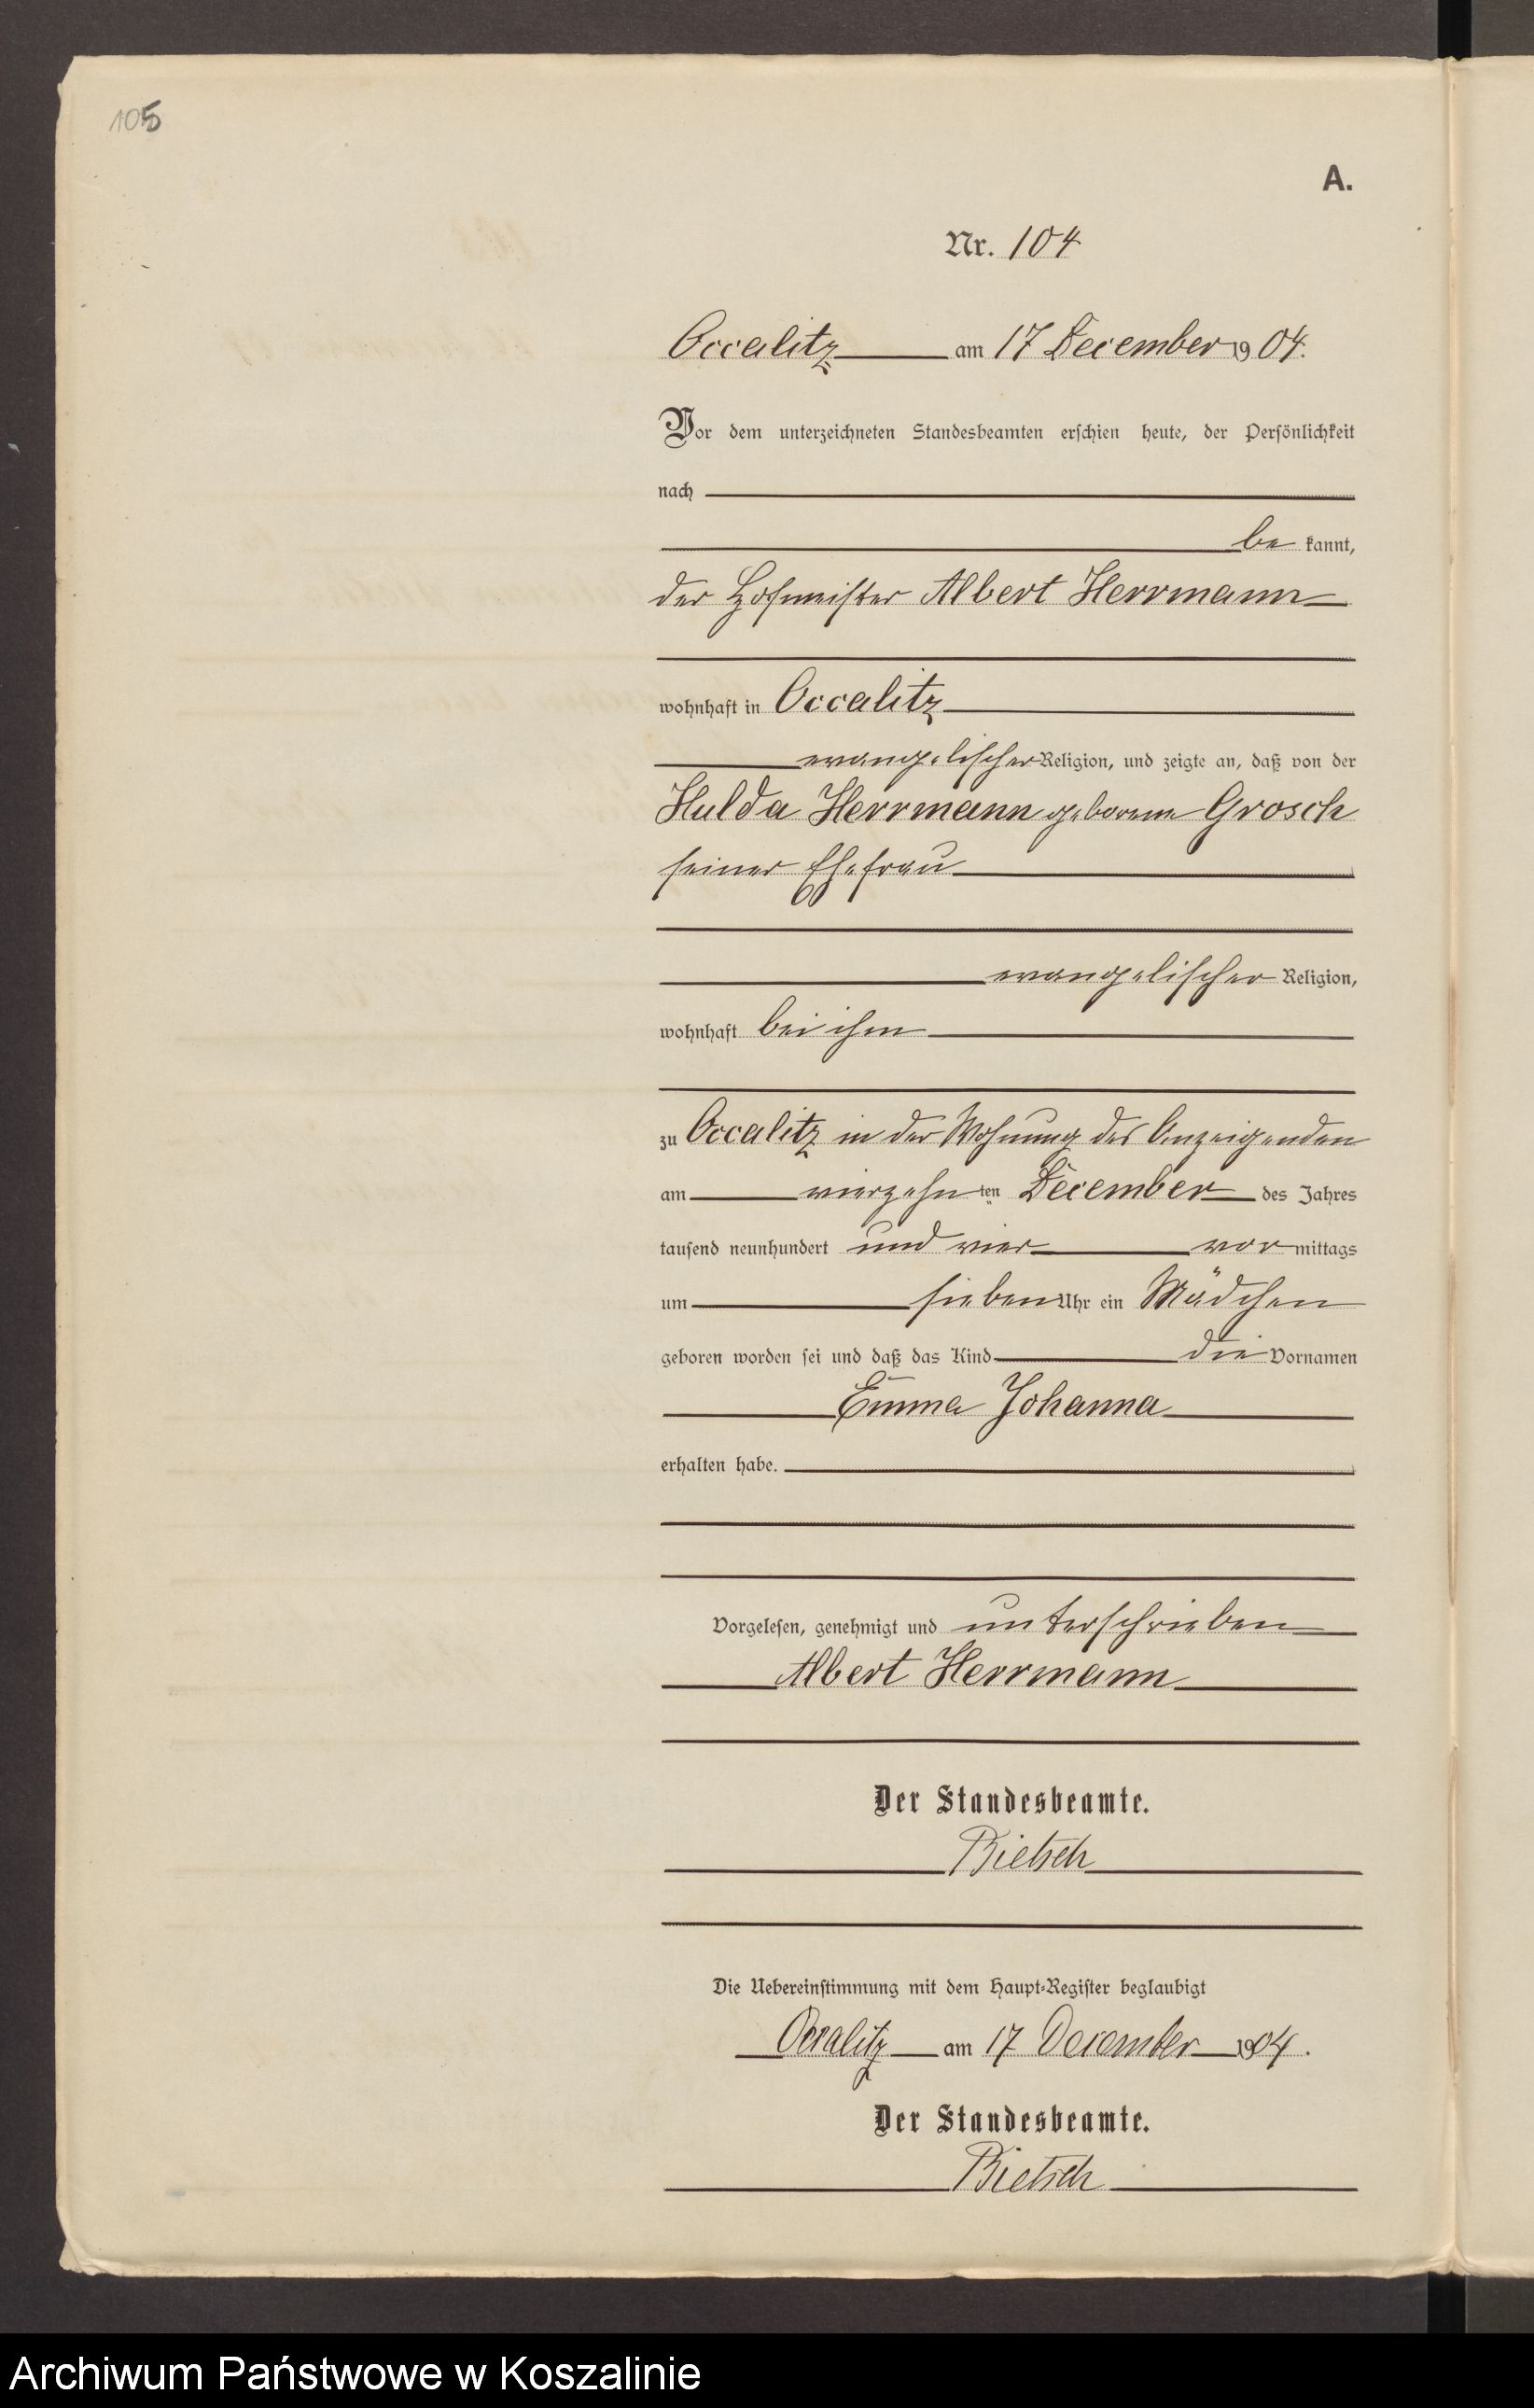 105
A.
Nr. 104
Occalitz am 17 December 1904.
Vor dem unterzeichneten Standesbeamten erschien heute, der Persönlichkeit
nach
be kannt,
der Hofmeister Albert Herrmann
wohnhaft in Occalitz
evangelischer Religion, und zeigte an, daß von der
Hulda Herrmann geborene Grosch
seiner Ehefrau
evangelischer Religion,
wohnhaft bei ihm
zu Occalitz in der Wohnung des Anzeigenden
am vierzehn ten December des Jahres
tausend neunhundert und vier vor mittags
um sieben Uhr ein Mädchen
geboren worden sei und daß das Kind die Vornamen
Emma Johanna
erhalten habe.
Vorgelesen, genehmigt und unterschrieben
Albert Herrmann
Der Standesbeamte.
Bietsch
Die Uebereinstimmung mit dem Haupt-Register beglaubigt
Occalitz am 17 December 1904.
Der Standesbeamte.
Bietsch
Archiwum Państwowe w Koszalinie